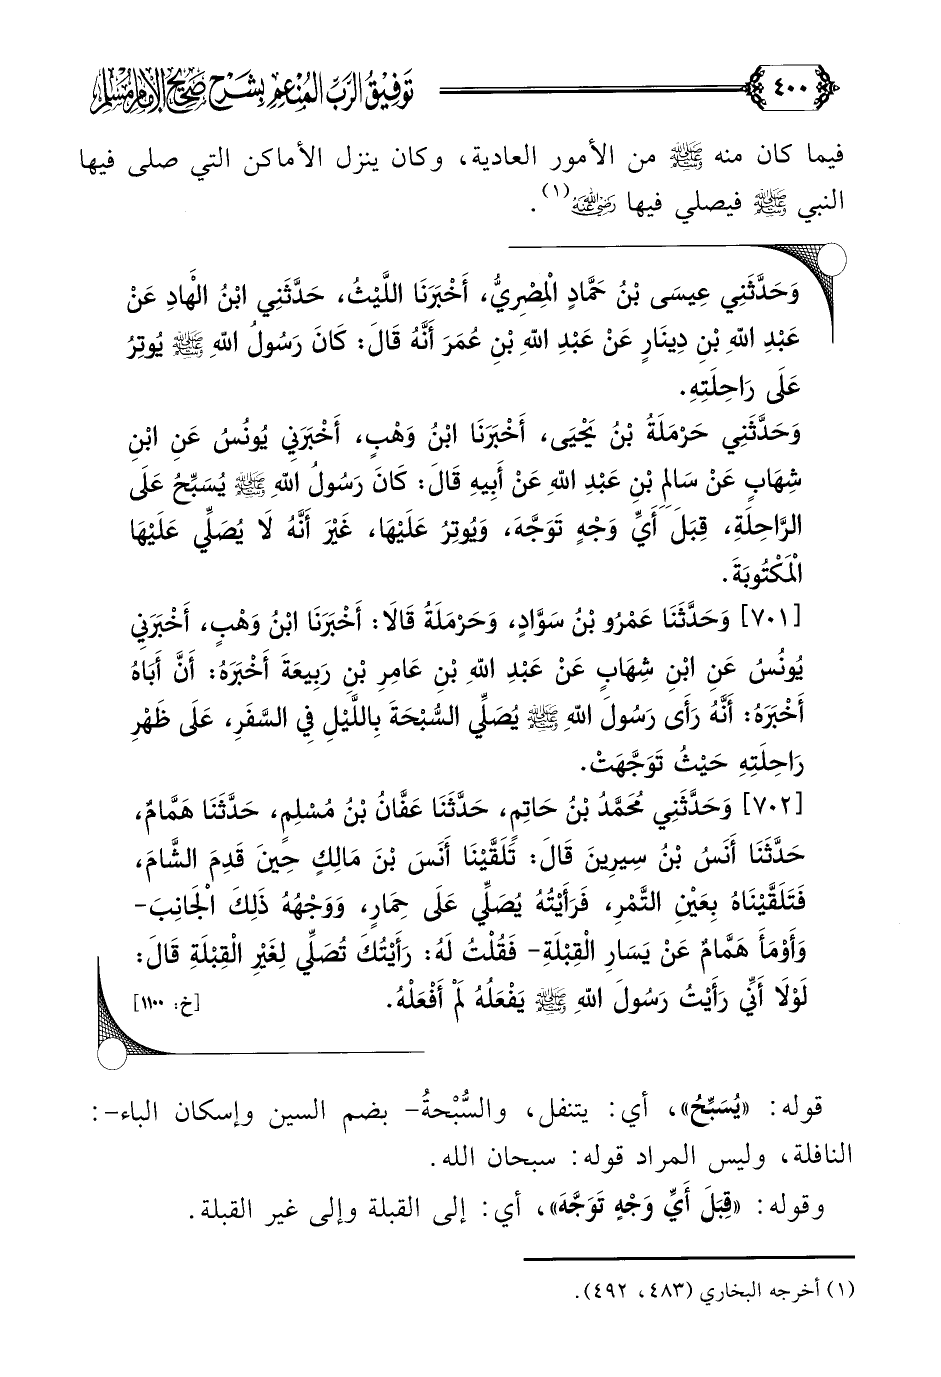 ٤٠٠ توفيق الرب المنعم بشرح صحيح الإمام مسلم
فيما كان منه ﷺ من الأمور العادية، وكان ينزل الأماكن التي صلى فيها
النبي ﷺ فيصلي فيها رضي الله عنه(١).
وَحَدَّثَنِي عِيسَى بْنُ حَمَّادٍ الْمِصْرِيُّ، أَخْبَرَنَا اللَّيْثُ، حَدَّثَنِي ابْنُ الْهَادِ عَنْ
عَبْدِ اللهِ بْنِ دِينَارٍ عَنْ عَبْدِ اللهِ بْنِ عُمَرَ أَنَّهُ قَالَ: كَانَ رَسُولُ اللهِ ﷺ يُوتِرُ
عَلَى رَاحِلَتِهِ.
وَحَدَّثَنِي حَرْمَلَةُ بْنُ يَحْيَى، أَخْبَرَنَا ابْنُ وَهْبٍ، أَخْبَرَنِي يُونُسُ عَنِ ابْنِ
شِهَابٍ عَنْ سَالِمِ بْنِ عَبْدِ اللهِ عَنْ أَبِيهِ قَالَ: كَانَ رَسُولُ اللهِ ﷺ يُسَبِّحُ عَلَى
الرَّاحِلَةِ، قِبَلَ أَيِّ وَجْهٍ تَوَجَّهَ، وَيُوتِرُ عَلَيْهَا، غَيْرَ أَنَّهُ لَا يُصَلِّي عَلَيْهَا
الْمَكْتُوبَةَ.
[٧٠١] وَحَدَّثَنَا عَمْرُو بْنُ سَوَّادٍ، وَحَرْمَلَةُ قَالَا: أَخْبَرَنَا ابْنُ وَهْبٍ، أَخْبَرَنِي
يُونُسُ عَنِ ابْنِ شِهَابٍ عَنْ عَبْدِ اللهِ بْنِ عَامِرِ بْنِ رَبِيعَةَ أَخْبَرَهُ: أَنَّ أَبَاهُ
أَخْبَرَهُ: أَنَّهُ رَأَى رَسُولَ اللهِ ﷺ يُصَلِّي السُّبْحَةَ بِاللَّيْلِ فِي السَّفَرِ، عَلَى ظَهْرِ
رَاحِلَتِهِ حَيْثُ تَوَجَّهَتْ.
[٧٠٢] وَحَدَّثَنِي مُحَمَّدُ بْنُ حَاتِمٍ، حَدَّثَنَا عَفَّانُ بْنُ مُسْلِمٍ، حَدَّثَنَا هَمَّامٌ،
حَدَّثَنَا أَنَسُ بْنُ سِيرِينَ قَالَ: تَلَقَّيْنَا أَنَسَ بْنَ مَالِكٍ حِينَ قَدِمَ الشَّامَ،
فَتَلَقَّيْنَاهُ بِعَيْنِ التَّمْرِ، فَرَأَيْتُهُ يُصَلِّي عَلَى حِمَارٍ، وَوَجْهُهُ ذَلِكَ الْجَانِبَ-
وَأَوْمَأَ هَمَّامٌ عَنْ يَسَارِ الْقِبْلَةِ- فَقُلْتُ لَهُ: رَأَيْتُكَ تُصَلِّي لِغَيْرِ الْقِبْلَةِ قَالَ:
لَوْلَا أَنِّي رَأَيْتُ رَسُولَ اللهِ ﷺ يَفْعَلُهُ لَمْ أَفْعَلْهُ. [خ: ١١٠٠]
قوله: «يُسَبِّحُ»، أي: يتنفل، والسُّبْحةُ- بضم السين وإسكان الباء-:
النافلة، وليس المراد قوله: سبحان الله.
وقوله: «قِبَلَ أَيِّ وَجْهٍ تَوَجَّهَ»، أي: إلى القبلة وإلى غير القبلة.
(١) أخرجه البخاري (٤٨٣، ٤٩٢).